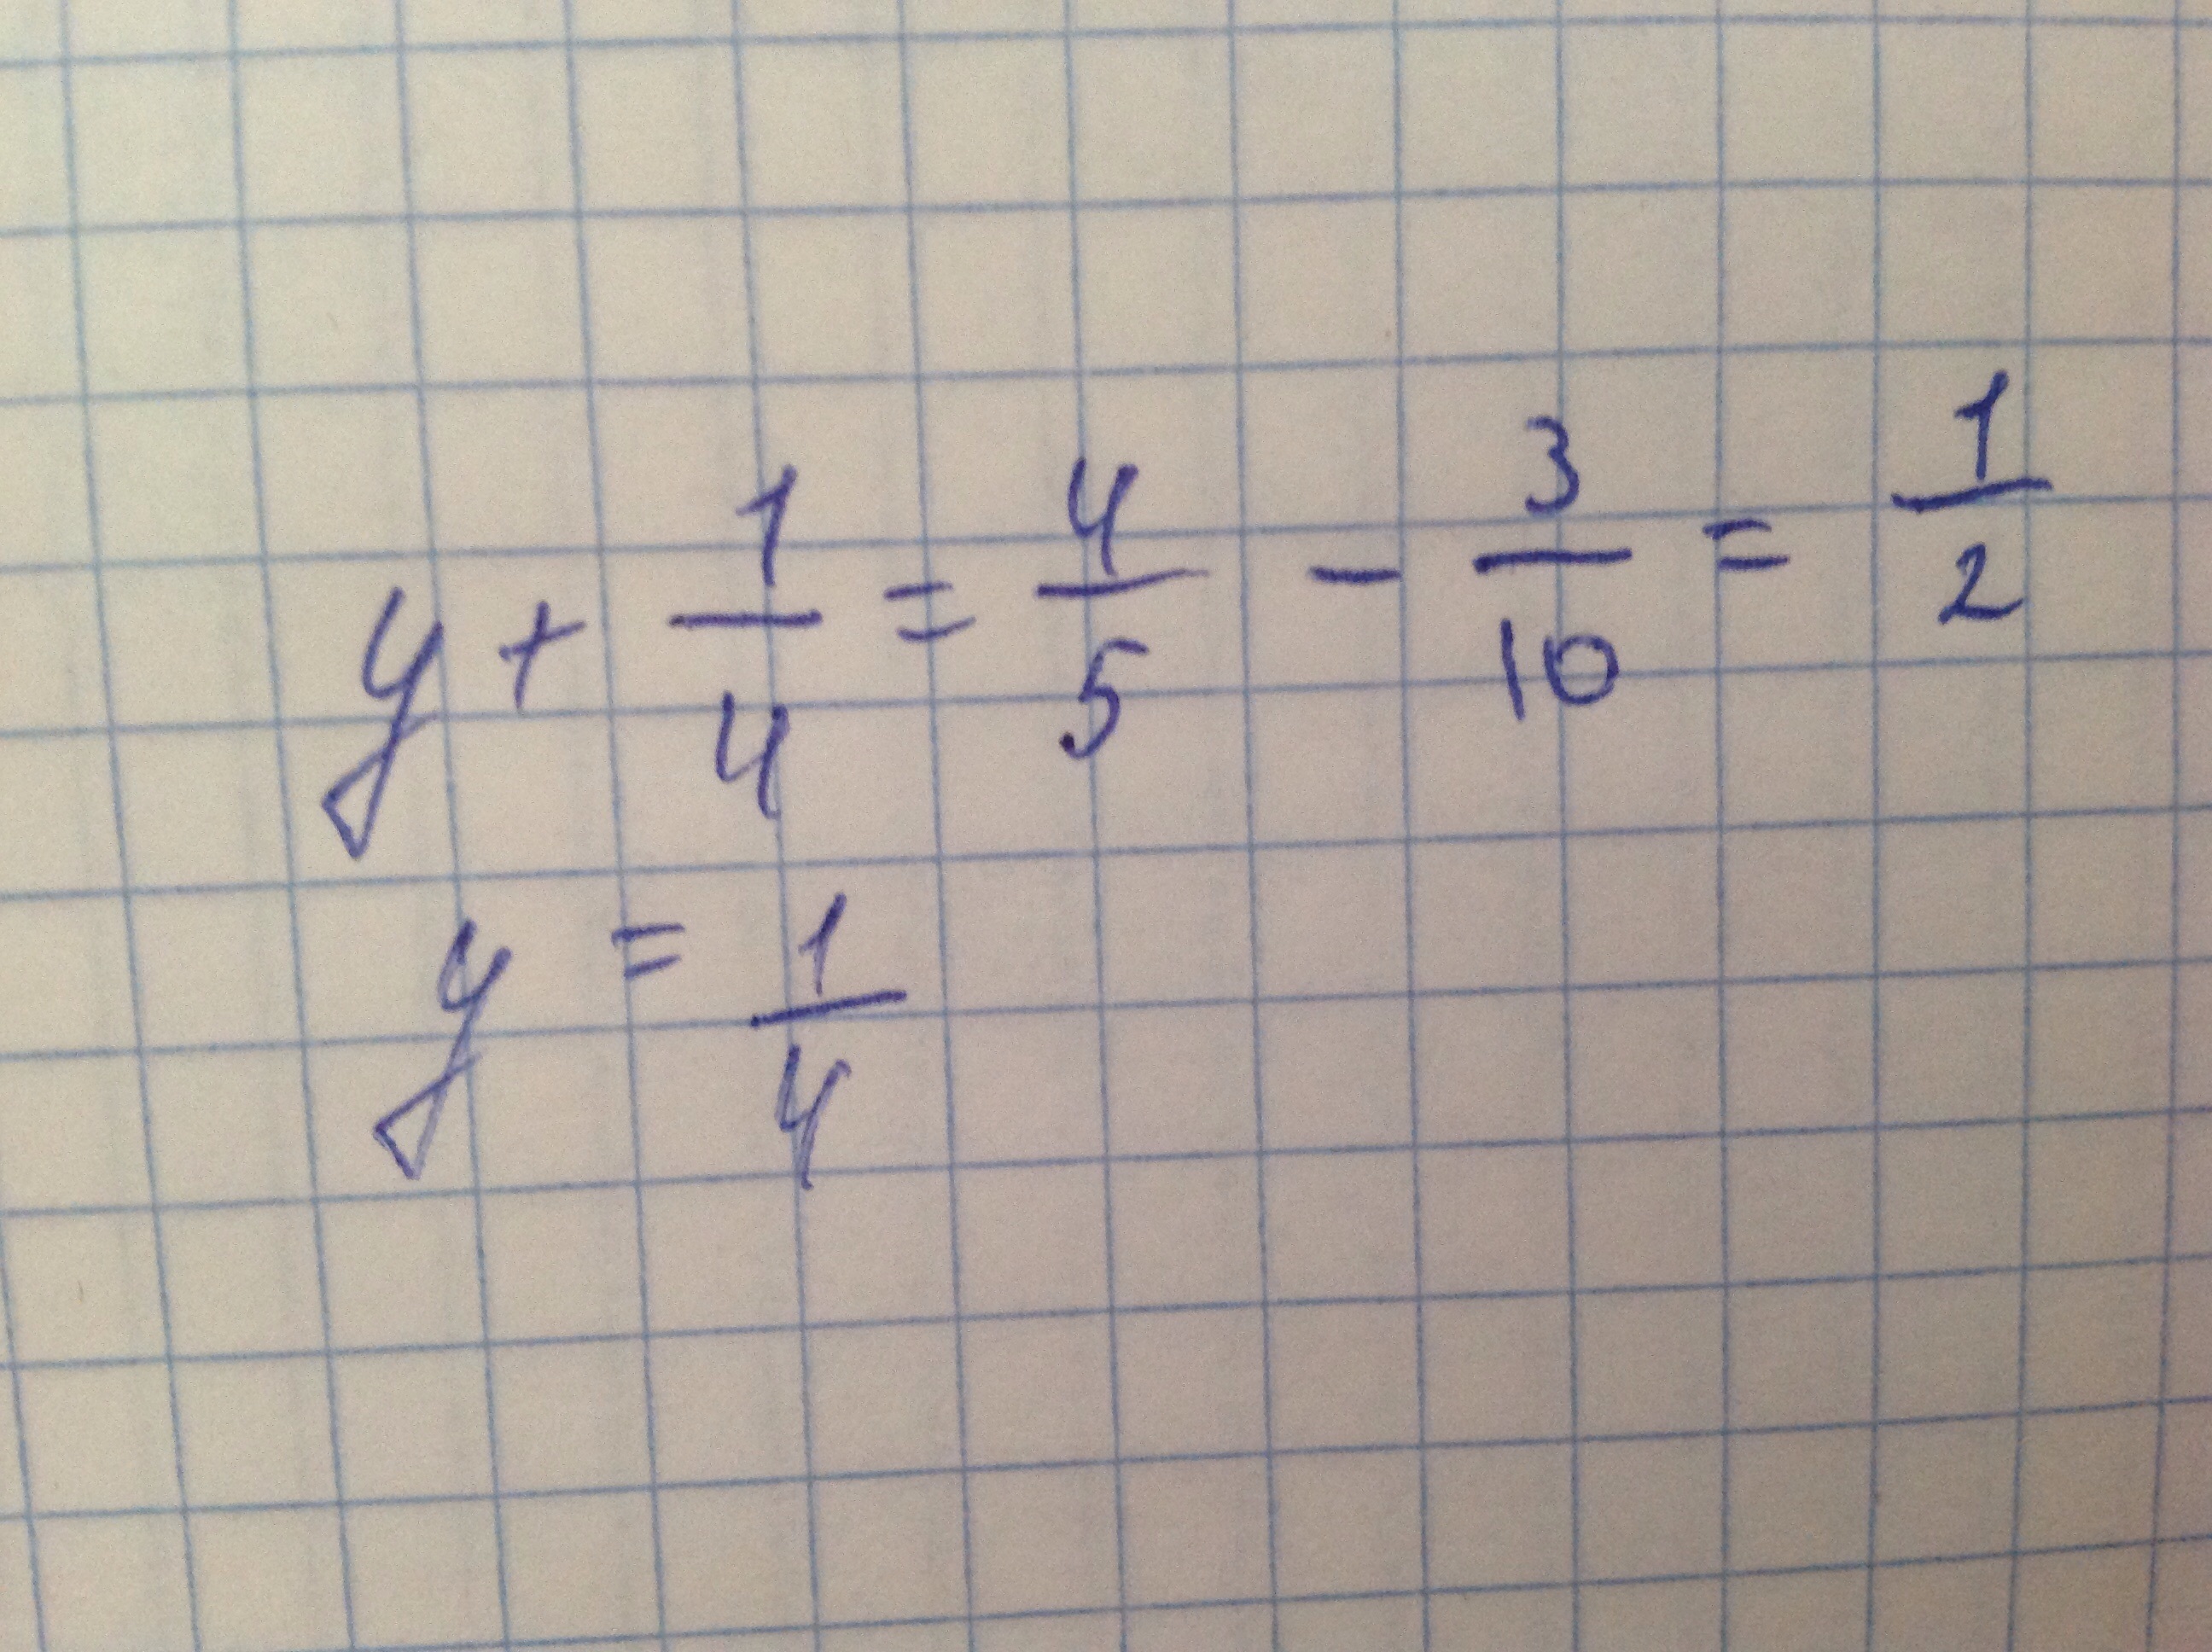 y + 1/4 = 4/5 - 3/10 = 1/2
y = 1/4